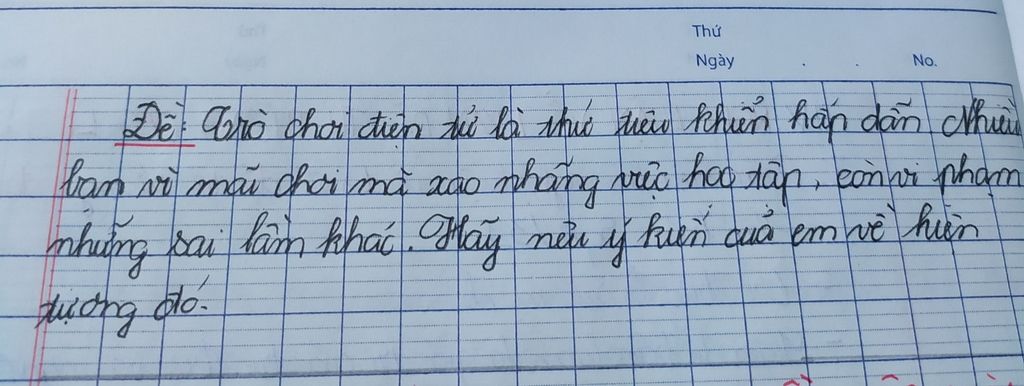 Thứ
Ngày . . No.
Đề: Trò chơi điện tử là thứ tiêu khiển hấp dẫn Nhiều
bạn vì mãi chơi mà xao nhãng việc học tập, còn vi phạm
những sai lầm khác. Hãy nêu ý kiến của em về hiện
tượng đó.